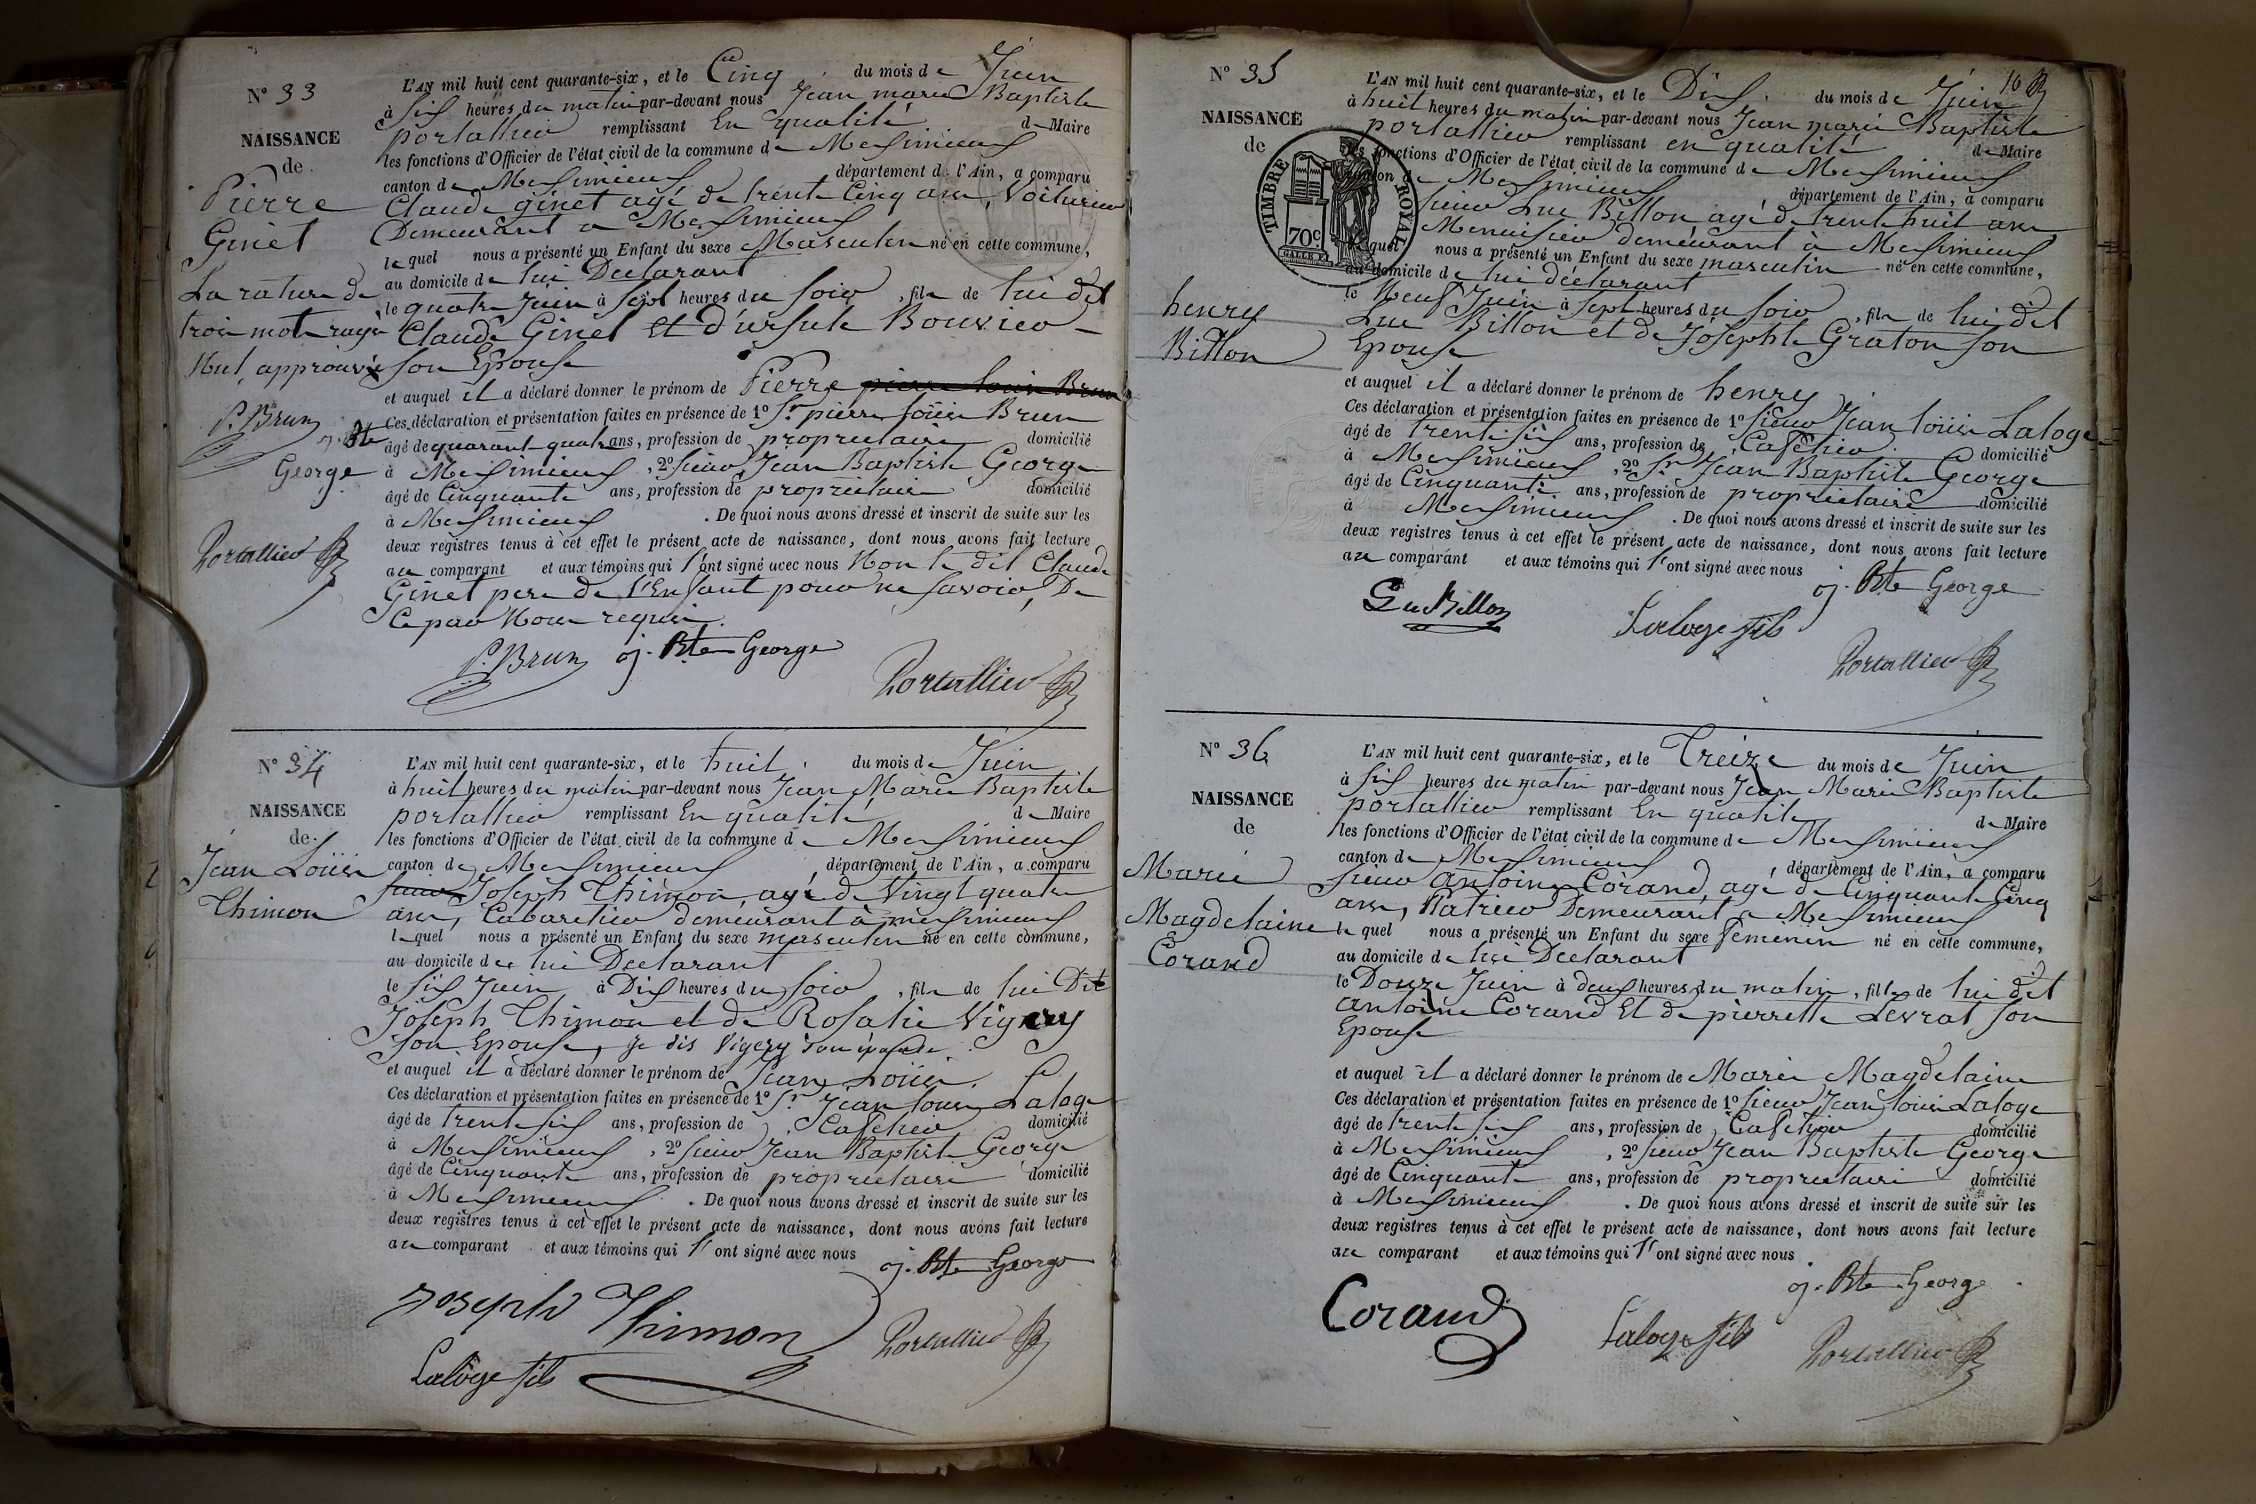 N° 33
NAISSANCE
de
Pierre
Ginet
La rature de
trois mots rayés
Nul, approuvé
P. Brun
j. Bte
George
Portallier
L'AN mil huit cent quarante-six, et le Cinq du mois de Juin
à six heures du matin par-devant nous Jean marie Baptiste
portallier remplissant En qualité de Maire
les fonctions d'Officier de l'état civil de la commune de Meximieux
canton de Meximieux département de l'Ain, a comparu
Claude ginet agé de trente Cinq ans, Voiturier
Demeurant a Meximieux
lequel nous a présenté un Enfant du sexe Masculin né en cette commune,
au domicile de lui Declarant
le quatre Juin à sept heures du soir, fils de lui dit
Claude Ginet et d'ursule Bouvier
son Epouse
et auquel il a déclaré donner le prénom de Pierre pierre louis Brun
Ces déclaration et présentation faites en présence de 1° Sr. pierre louis Brun
âgé de quarant quatre ans, profession de proprietaire domicilié
à Meximieux, 2° sieur Jean Baptiste George
âgé de Cinquante ans, profession de proprietaire domicilié
à Meximieux. De quoi nous avons dressé et inscrit de suite sur les
deux registres tenus à cet effet le présent acte de naissance, dont nous avons fait lecture
au comparant et aux témoins qui l'ont signé avec nous Non le dit Claude
Ginet pere de l'Enfant pour ne savoir, De
Ce par Nous requis.
P. Brun j. Bte George
Portallier
N° 34
NAISSANCE
de
Jean Louis
Thimon
L'AN mil huit cent quarante-six, et le huit du mois de Juin
à huit heures du matin par-devant nous Jean Marie Baptiste
portallier remplissant En qualité de Maire
les fonctions d'Officier de l'état civil de la commune de Meximieux
canton de Meximieux département de l'Ain, a comparu
sieur Joseph Thimon, agé de Vingt quatre
ans, Cabaretier demeurant à meximieux
lequel nous a présenté un Enfant du sexe masculin né en cette commune,
au domicile de lui Declarant
le six Juin à Dix heures du soir, fils de lui Dit
Joseph Thimon et de Rosalie Vigery
son Epouse, je dis Vigery son épouse.
et auquel il a déclaré donner le prénom de Jean Louis.
Ces déclaration et présentation faites en présence de 1° Sr. Jean louis Laloge
âgé de trente six ans, profession de Cafetier domicilié
à Meximieux, 2° sieur Jean Baptiste George
âgé de Cinquante ans, profession de proprietaire domicilié
à Meximieux. De quoi nous avons dressé et inscrit de suite sur les
deux registres tenus à cet effet le présent acte de naissance, dont nous avons fait lecture
au comparant et aux témoins qui l'ont signé avec nous
j. Bte George
Joseph Thimon
Laloge fils
Portallier
16
N° 35
NAISSANCE
de
TIMBRE ROYAL
70c
henry
Billon
L'AN mil huit cent quarante-six, et le Dix du mois de Juin
à huit heures du matin par-devant nous Jean marie Baptiste
portallier remplissant en qualité de Maire
les fonctions d'Officier de l'état civil de la commune de Meximieux
canton de Meximieux département de l'Ain, a comparu
sieur Luc Billon, agé de trente huit ans
Menuisier demeurant à Meximieux
lequel nous a présenté un Enfant du sexe masculin né en cette commune,
au domicile de lui déclarant
le Neuf Juin à sept heures du soir, fils de lui dit
Luc Billon et de Josephte Graton son
Epouse
et auquel il a déclaré donner le prénom de henry
Ces déclaration et présentation faites en présence de 1° sieur Jean louis Laloge
âgé de trente six ans, profession de Cafetier domicilié
à Meximieux, 2° Sr. Jean Baptiste George
âgé de Cinquante ans, profession de proprietaire domicilié
à Meximieux. De quoi nous avons dressé et inscrit de suite sur les
deux registres tenus à cet effet le présent acte de naissance, dont nous avons fait lecture
au comparant et aux témoins qui l'ont signé avec nous
j. Bte George
Billon
Laloge fils
Portallier
N° 36
NAISSANCE
de
Marie
Magdelaine
Corand
L'AN mil huit cent quarante-six, et le Treize du mois de Juin
à six heures du matin par-devant nous Jean Marie Baptiste
portallier remplissant En qualité de Maire
les fonctions d'Officier de l'état civil de la commune de Meximieux
canton de Meximieux département de l'Ain, a comparu
sieur antoine Corand, agé de Cinquante Cinq
ans, Platrier Demeurant a Meximieux
lequel nous a présenté un Enfant du sexe feminin né en cette commune,
au domicile de lui Declarant
le Douze Juin à deux heures du matin, fille de lui dit
antoine Corand Et de pierrette Levrat son
Epouse
et auquel il a déclaré donner le prénom de Marie Magdelaine
Ces déclaration et présentation faites en présence de 1° sieur Jean louis Laloge
âgé de trente six ans, profession de Cafetier domicilié
à Meximieux, 2° sieur Jean Baptiste George
âgé de Cinquante ans, profession de proprietaire domicilié
à Meximieux. De quoi nous avons dressé et inscrit de suite sur les
deux registres tenus à cet effet le présent acte de naissance, dont nous avons fait lecture
au comparant et aux témoins qui l'ont signé avec nous
j. Bte George
Corand
Laloge fils
Portallier